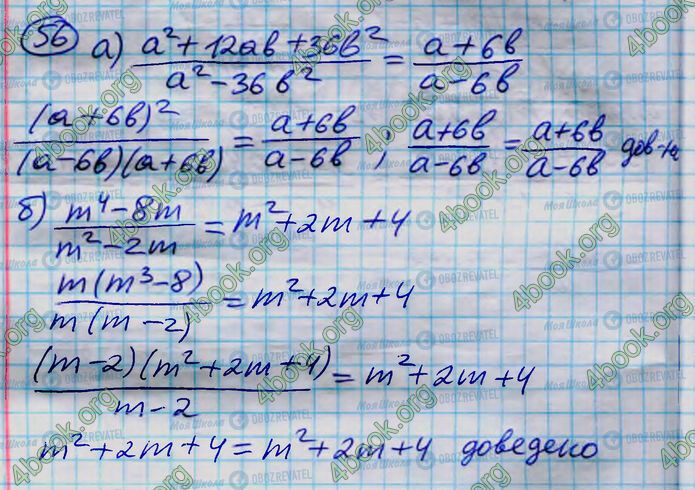 56 а) (a² + 12ab + 36b²)/(a² - 36b²) = (a + 6b)/(a - 6b)
(a + 6b)²/((a - 6b)(a + 6b)) = (a + 6b)/(a - 6b) ; (a + 6b)/(a - 6b) = (a + 6b)/(a - 6b)
б) (m⁴ - 8m)/(m² - 2m) = m² + 2m + 4
m(m³ - 8)/(m(m - 2)) = m² + 2m + 4
(m - 2)(m² + 2m + 4)/(m - 2) = m² + 2m + 4
m² + 2m + 4 = m² + 2m + 4 доведено
4book.org
Моя Школа
OBOZREVATEL